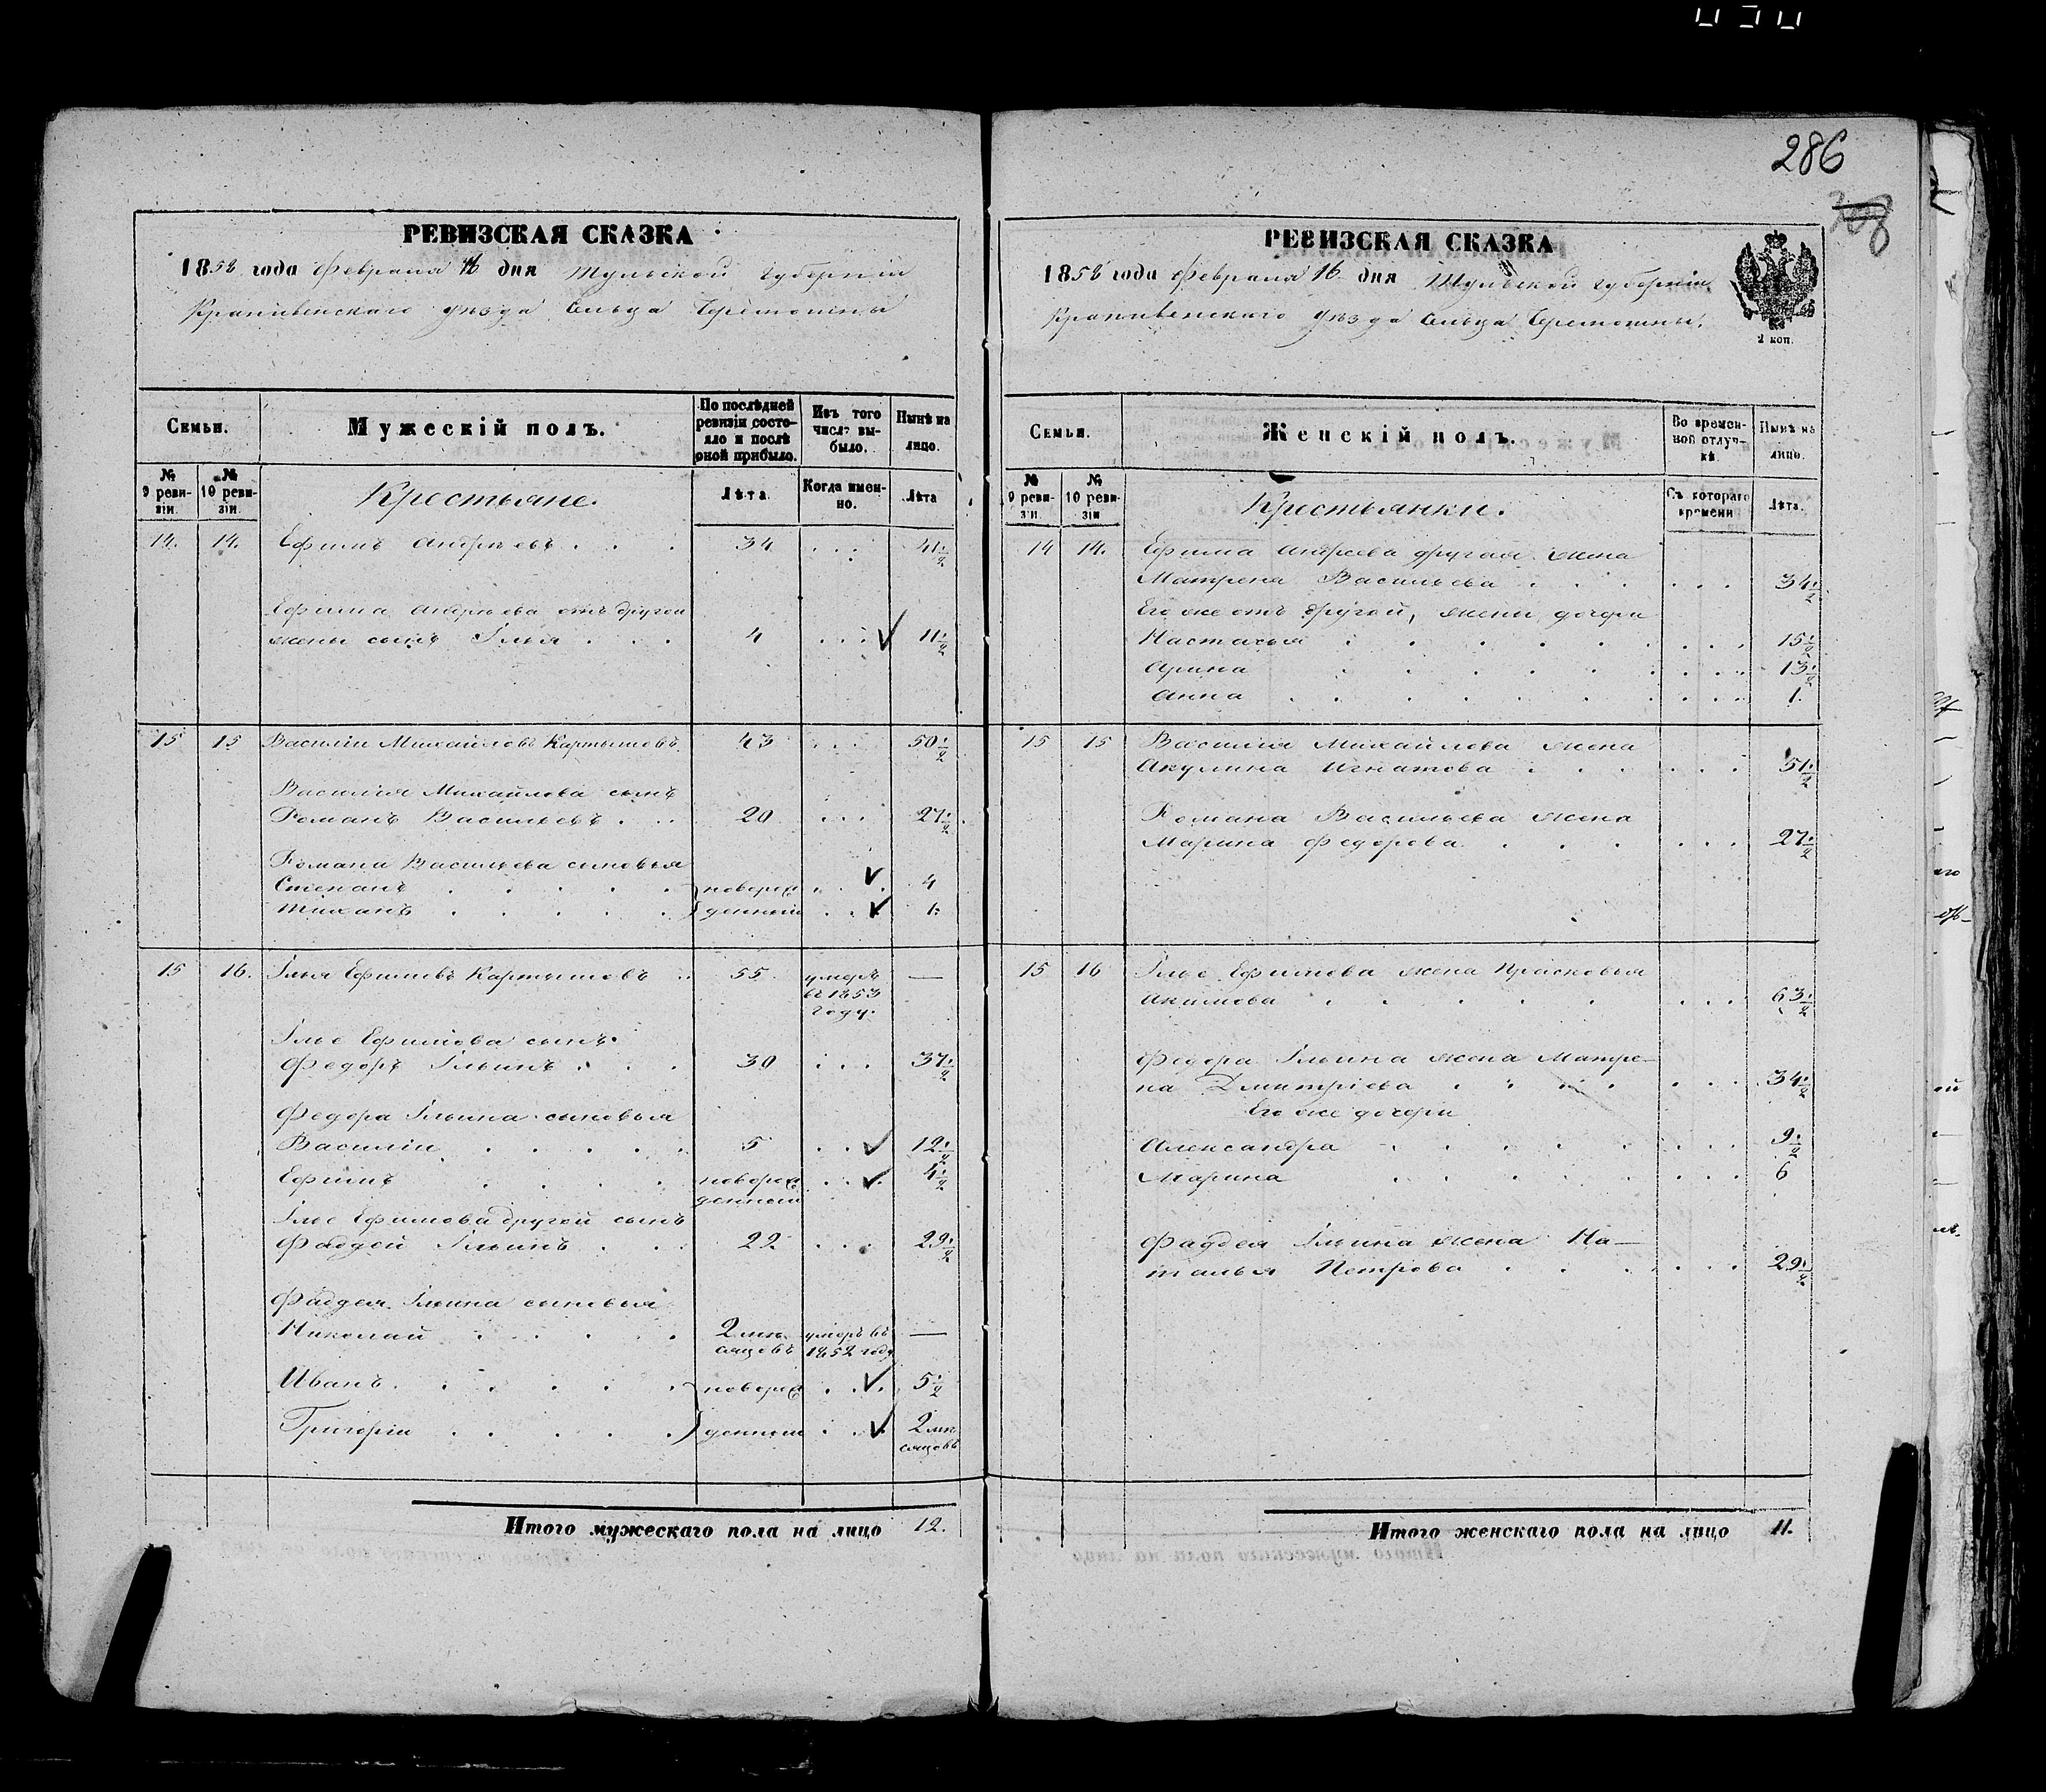 286
308
РЕВИЗСКАЯ СКАЗКА
1858 года Февраля 16 дня Тульской губерніи
Крапивенскаго уѣзда Сельца Черемошны
Семьи.
Мужескій полъ.
По послѣдней ревизіи состояло и послѣ оной прибыло.
Изъ того числа выбыло.
Нынѣ на лицо.
№ 9 ревизіи.
№ 10 ревизіи.
Крестьяне.
Лѣта.
Когда именно.
Лѣта
14. 14. Ефимъ Андреевъ . . . 34 . . . 41½
Ефима Андреева отъ другой
жены сынъ Илья . . . 4 . . . 11½
15 15 Василій Михайловъ Картышовъ 43 . . . 50½
Василія Михайлова сынъ
Романъ Васильевъ . . . 20 . . . 27½
Романа Васильева сыновья
Степанъ . . . . . новорож . . . 4
Тиханъ . . . . . денный . . . 1.
15 16. Илья Ефимовъ Картышовъ . . 55 умеръ —
въ 1853
году.
Илье Ефимова сынъ
Федоръ Ильинъ . . . 30 . . . 37½
Федора Ильина сыновья
Василій . . . . . 5 . . 12½
Ефимъ . . . . новорож . . . 4½
денный
Илье Ефимова другой сынъ
Фаддей Ильинъ . . . 22 . . . 29½
Фаддея Ильина сыновья
Николай . . . . . 2 мѣ умеръ въ —
сяцовъ 1852 году
Иванъ . . . . . новорож . . . 5½
Григорій . . . . . денный . . . 2 мѣ
сяцовъ
Итого мужескаго пола на лицо 12.
РЕВИЗСКАЯ СКАЗКА
1858 года Февраля 16 дня Тульской губерніи
Крапивенскаго уѣзда Сельца Черемошны.
2 коп.
Семьи.
Женскій полъ.
Во временной отлучкѣ.
Нынѣ на лицо.
№ 9 ревизіи.
№ 10 ревизіи
Крестьянки.
Съ котораго времени
Лѣта.
14 14. Ефима Андреева другая жена
Матрена Васильева . . . . . . 34½
Его же отъ другой, жены дочери
Настасья . . . . . . . . . 15½
Арина . . . . . . . . . 13½
Анна . . . . . . . . . 1.
15 15 Василія Михайлова жена
Акулина Игнатова . . . . . . 51½
Романа Васильева жена
Марина Федорова . . . . . . 27½
15 16 Илье Ефимова жена Прасковья
Акимова . . . . . . . . 63½
Федора Ильина жена Матре—
на Дмитріева . . . . . . . 34½
Его же дочери
Александра . . . . . . . . 9½
Марина . . . . . . . . 6
Фаддея Ильина жена На—
талья Петрова . . . . . . 29½
Итого женскаго пола на лицо 11.